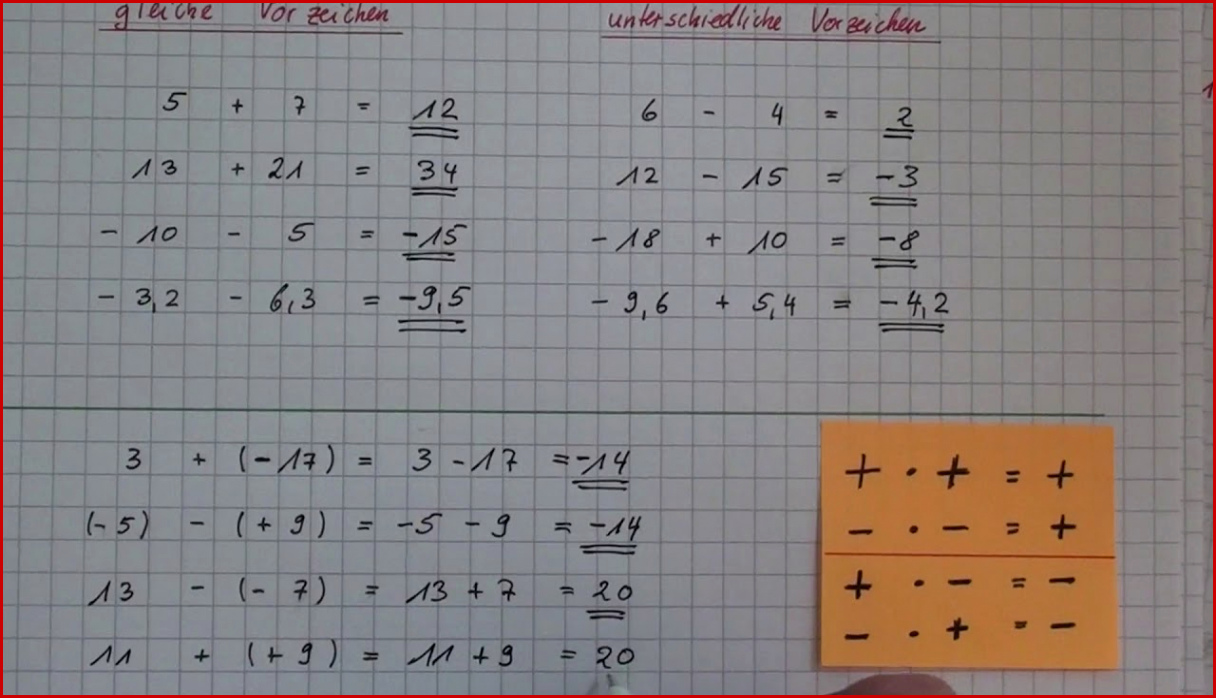 gleiche Vorzeichen
5 + 7 = 12
13 + 21 = 34
- 10 - 5 = -15
- 3,2 - 6,3 = -9,5
unterschiedliche Vorzeichen
6 - 4 = 2
12 - 15 = -3
- 18 + 10 = -8
- 9,6 + 5,4 = -4,2
3 + (-17) = 3 - 17 = -14
(-5) - (+ 9) = -5 - 9 = -14
13 - (- 7) = 13 + 7 = 20
11 + (+ 9) = 11 + 9 = 20
+ · + = +
- · - = +
+ · - = -
- · + = -